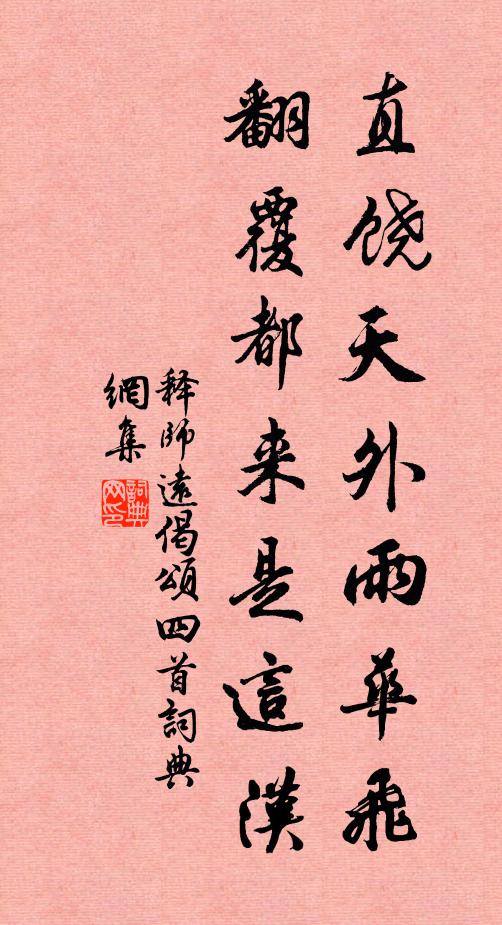 直饶天外雨華飛
翻覆都来是這漢
释師遠偈頌四首詞典
網集
詞典網印